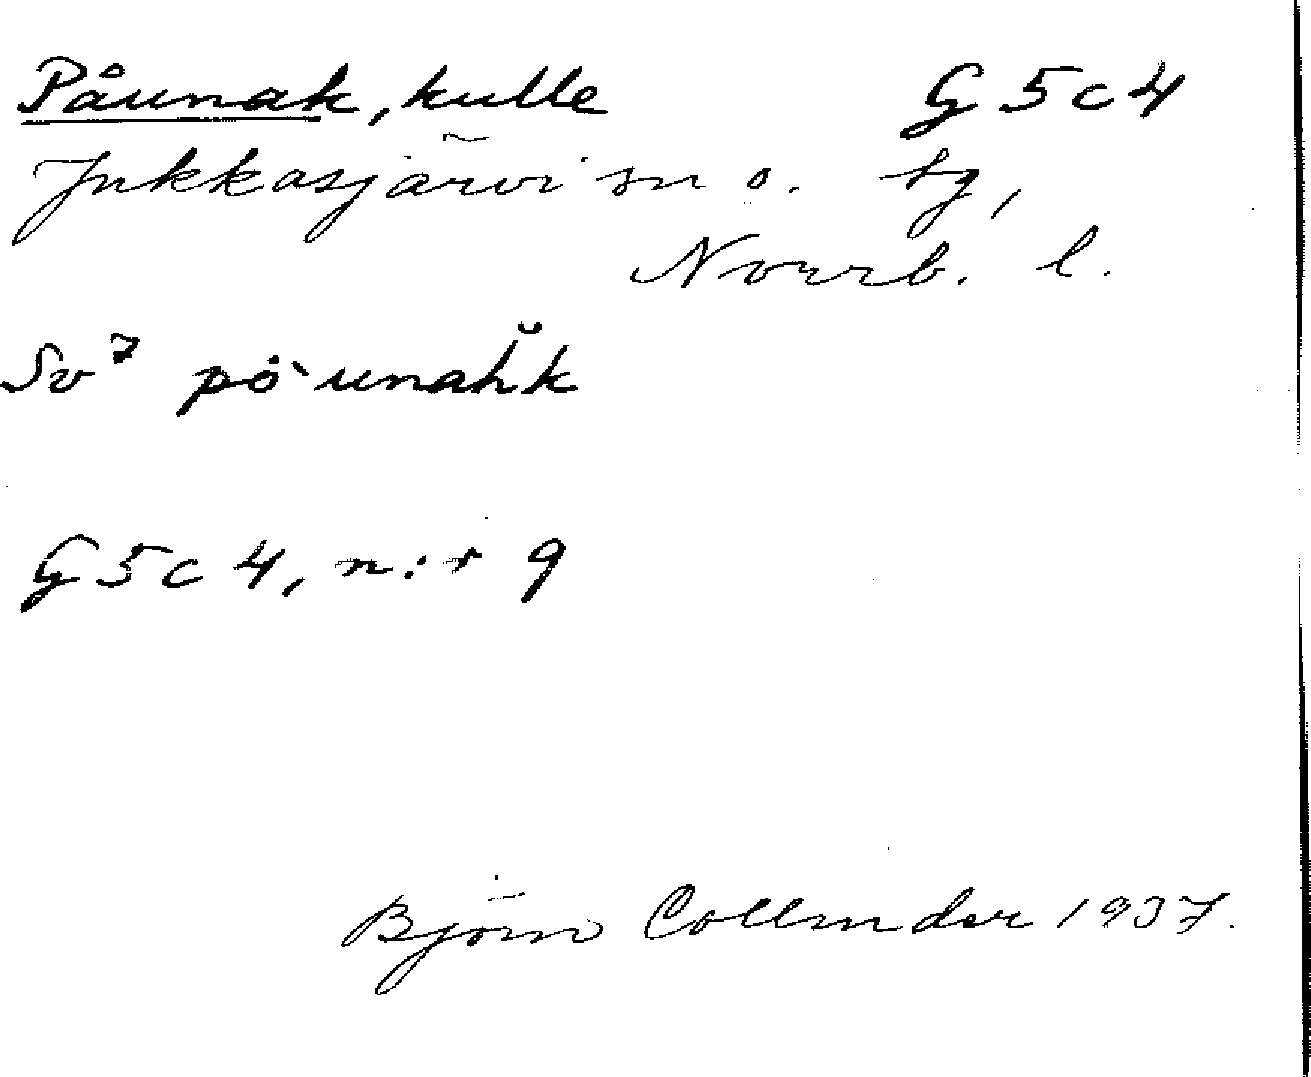 Påunak, kulle G 5 c 4
Jukkasjärvi sn o. tg,
Norrb. l.
Sv⁷ på̀unah̆k
G 5 c 4, n:r 9
Björn Collinder 1937.